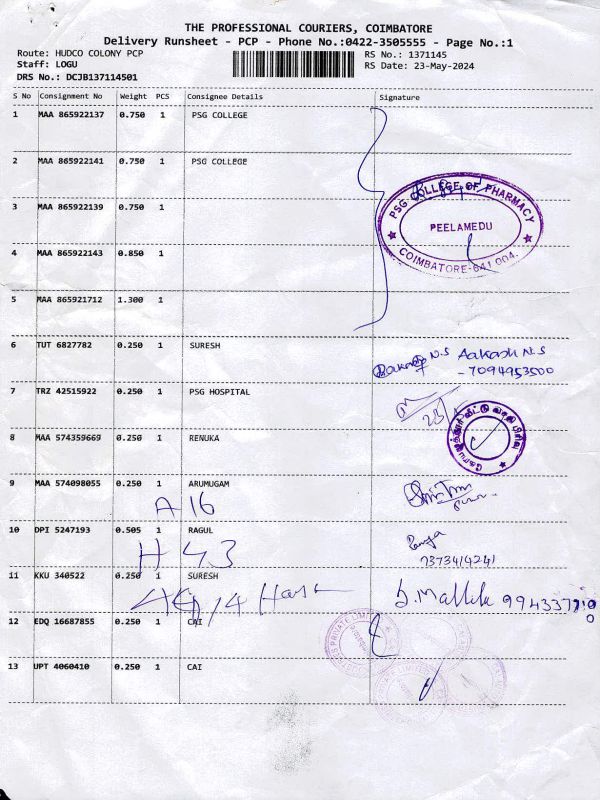 THE PROFESSIONAL COURIERS, COIMBATORE
Delivery Runsheet - PCP - Phone No.:0422-3505555 - Page No.:1
Route: HUDCO COLONY PCP
RS No.: 1371145
Staff: LOGU
RS Date: 23-May-2024
DRS No.: DCJB137114501
S No Consignment No Weight PCS Consignee Details Signature
1 MAA 865922137 0.750 1 PSG COLLEGE
2 MAA 865922141 0.750 1 PSG COLLEGE
PSG COLLEGE OF PHARMACY
3 MAA 865922139 0.750 1
PEELAMEDU
4 MAA 865922143 0.850 1
COIMBATORE-641 004.
5 MAA 865921712 1.300 1
6 TUT 6827782 0.250 1 SURESH
Aakash N.S
- 7094953500
7 TRZ 42515922 0.250 1 PSG HOSPITAL
8 MAA 574359669 0.250 1 RENUKA
9 MAA 574098055 0.250 1 ARUMUGAM
A 16
10 DPI 5247193 0.505 1 RAGUL
H 43
7373414241
11 KKU 340522 0.250 1 SURESH
12 EDQ 16687855 0.250 1 CAI
13 UPT 4060410 0.250 1 CAI